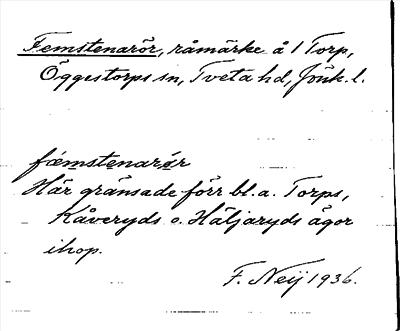 Femstenarör, råmärke å 1 Torp,
Öggestorps sn, Tveta hd, Jönk. l.
fæmstenarør
Här gränsade förr bl. a. Torps,
Kåveryds o. Häljaryds ägor
ihop.
F. Neij 1936.